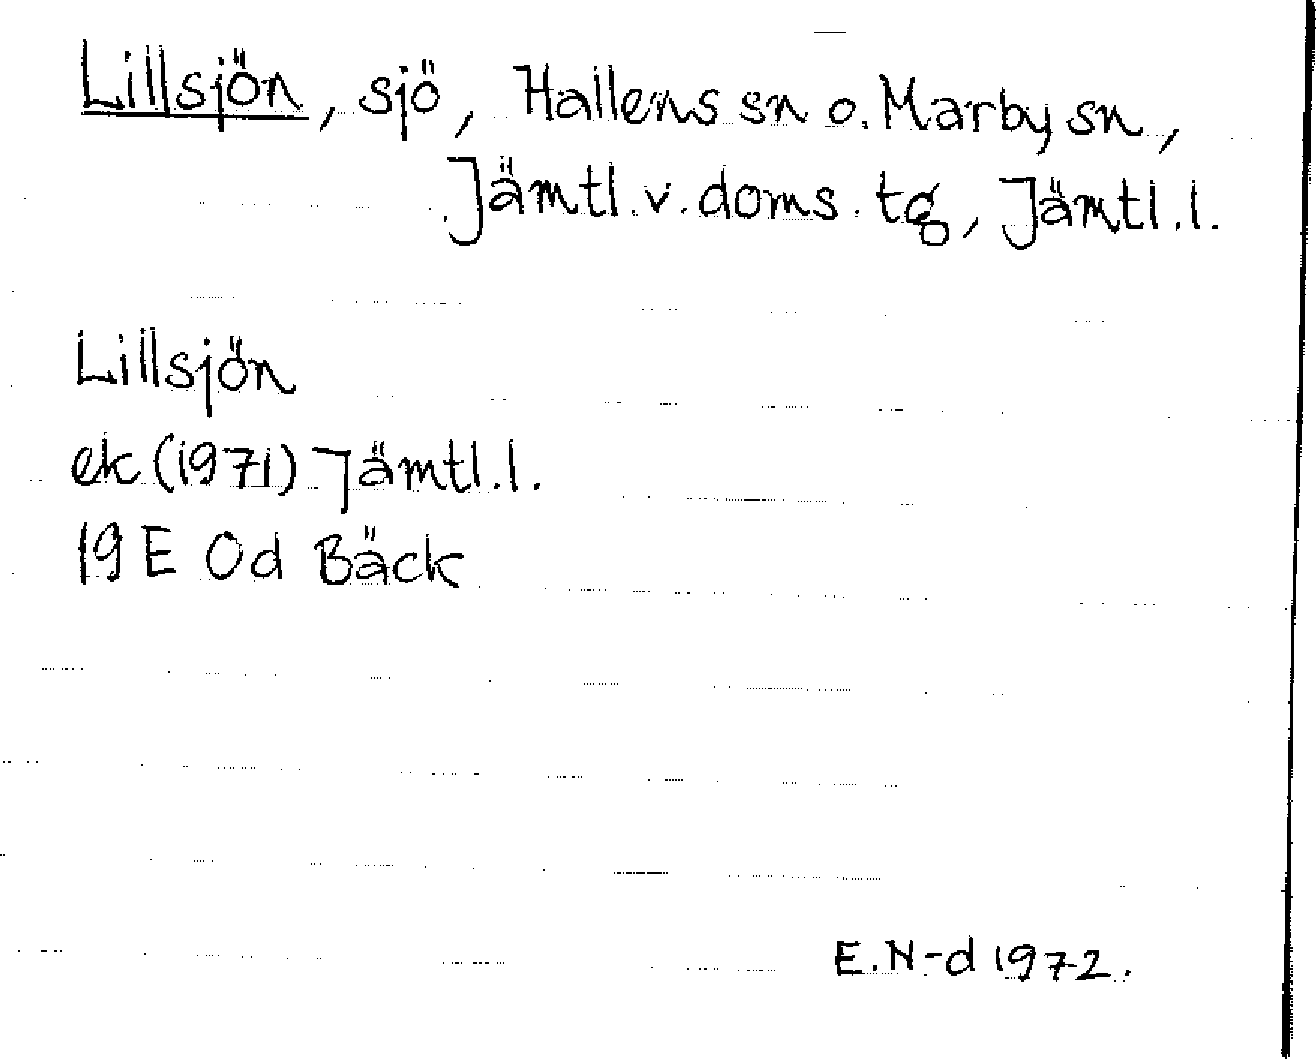 Lillsjön, sjö, Hallens sn o. Marby sn,
Jämtl. v. doms. tg, Jämtl. l.
Lillsjön
ek (1971) Jämtl. l.
19 E 0d Bäck
E. N-d 1972.